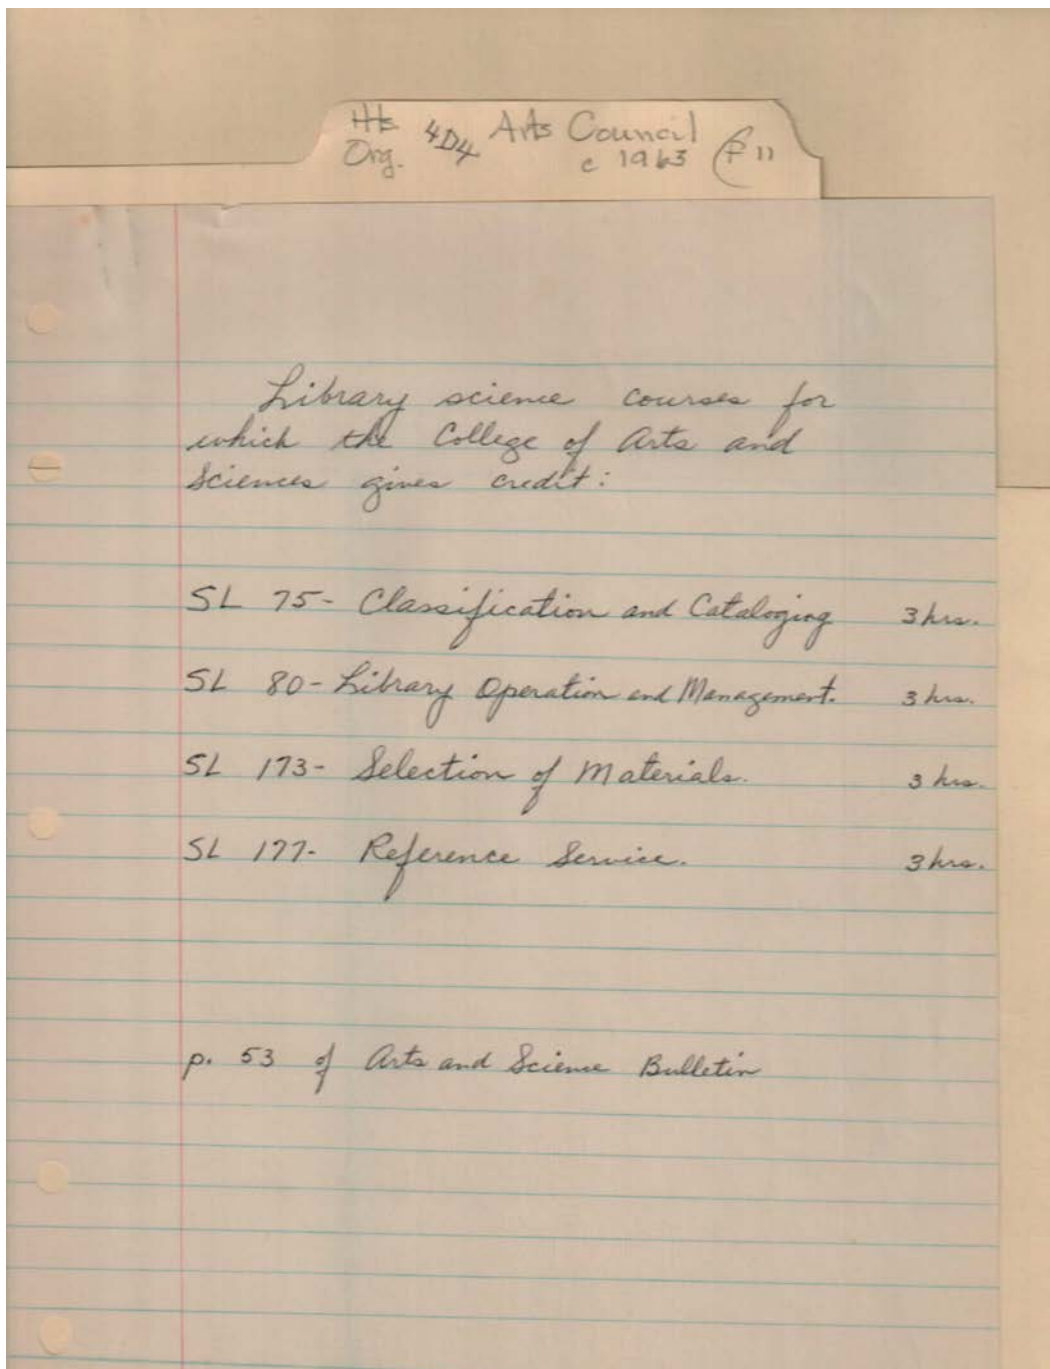 Org. 4D4 Arts Council
c 1963
Library science courses for
which the College of Arts and
Sciences gives credit:
SL 75- Classification and Cataloging 3 hrs.
SL 80- Library Operation and Management. 3 hrs.
SL 173- Selection of Materials. 3 hrs.
SL 177- Reference Service. 3 hrs.
p. 53 of Arts and Science Bulletin